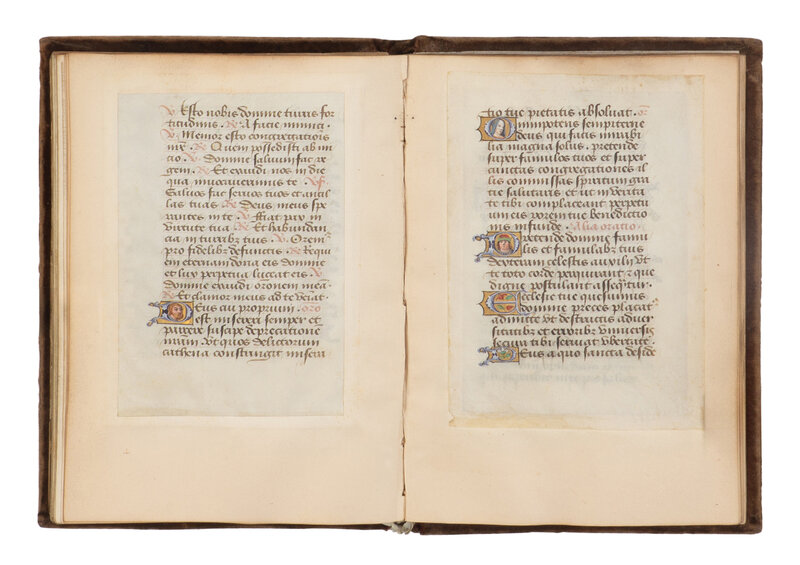 V Esto nobis domine turris for
titudinis. R A facie inimici.
V Memor esto congregatiois
tue. R Quem possedisti ab ini
tio. V Domine salvum fac re
gem. R Et exaudi nos in die
qua invocaverimus te. V
Salvos fac servos tuos et ancil
las tuas. R Deus meus spe
rantes in te. V Fiat pax in
virtute tua. R Et habundan
cia in turribz tuis. V Orem
pro fidelibz defunctis. R Requi
em eternam dona eis domine
et lux perpetua luceat eis. V
Domine exaudi oronem meã.
R Et clamor meus ad te veiat.
Deus cui proprium. oro
est misereri semper et
parcere suscipe deprecatione
nram. ut quos delictorum
cathena constringit misera
tio tue pietatis absolvat. or
Omnipotens sempiterne
deus qui facis mirabi
lia magna solus. pretende
super famulos tuos et super
cunctas congregationes il
lis commissas spiritum gra
tie salutaris et ut in verita
te tibi complaceant perpetu
um eis rorem tue benedictio
nis infunde. Alia oratio.
Pretende domine famu
lis et famulabz tuis
dexteram celestis auxilij ut
te toto corde perquirant z que
digne postulant assequtur.
Ecclesie tue quesumus
domine preces placat
admitte ut destructis adver
sitatibz et erroribz universis
secura tibi serviat libertate.
Deus a quo sancta deside